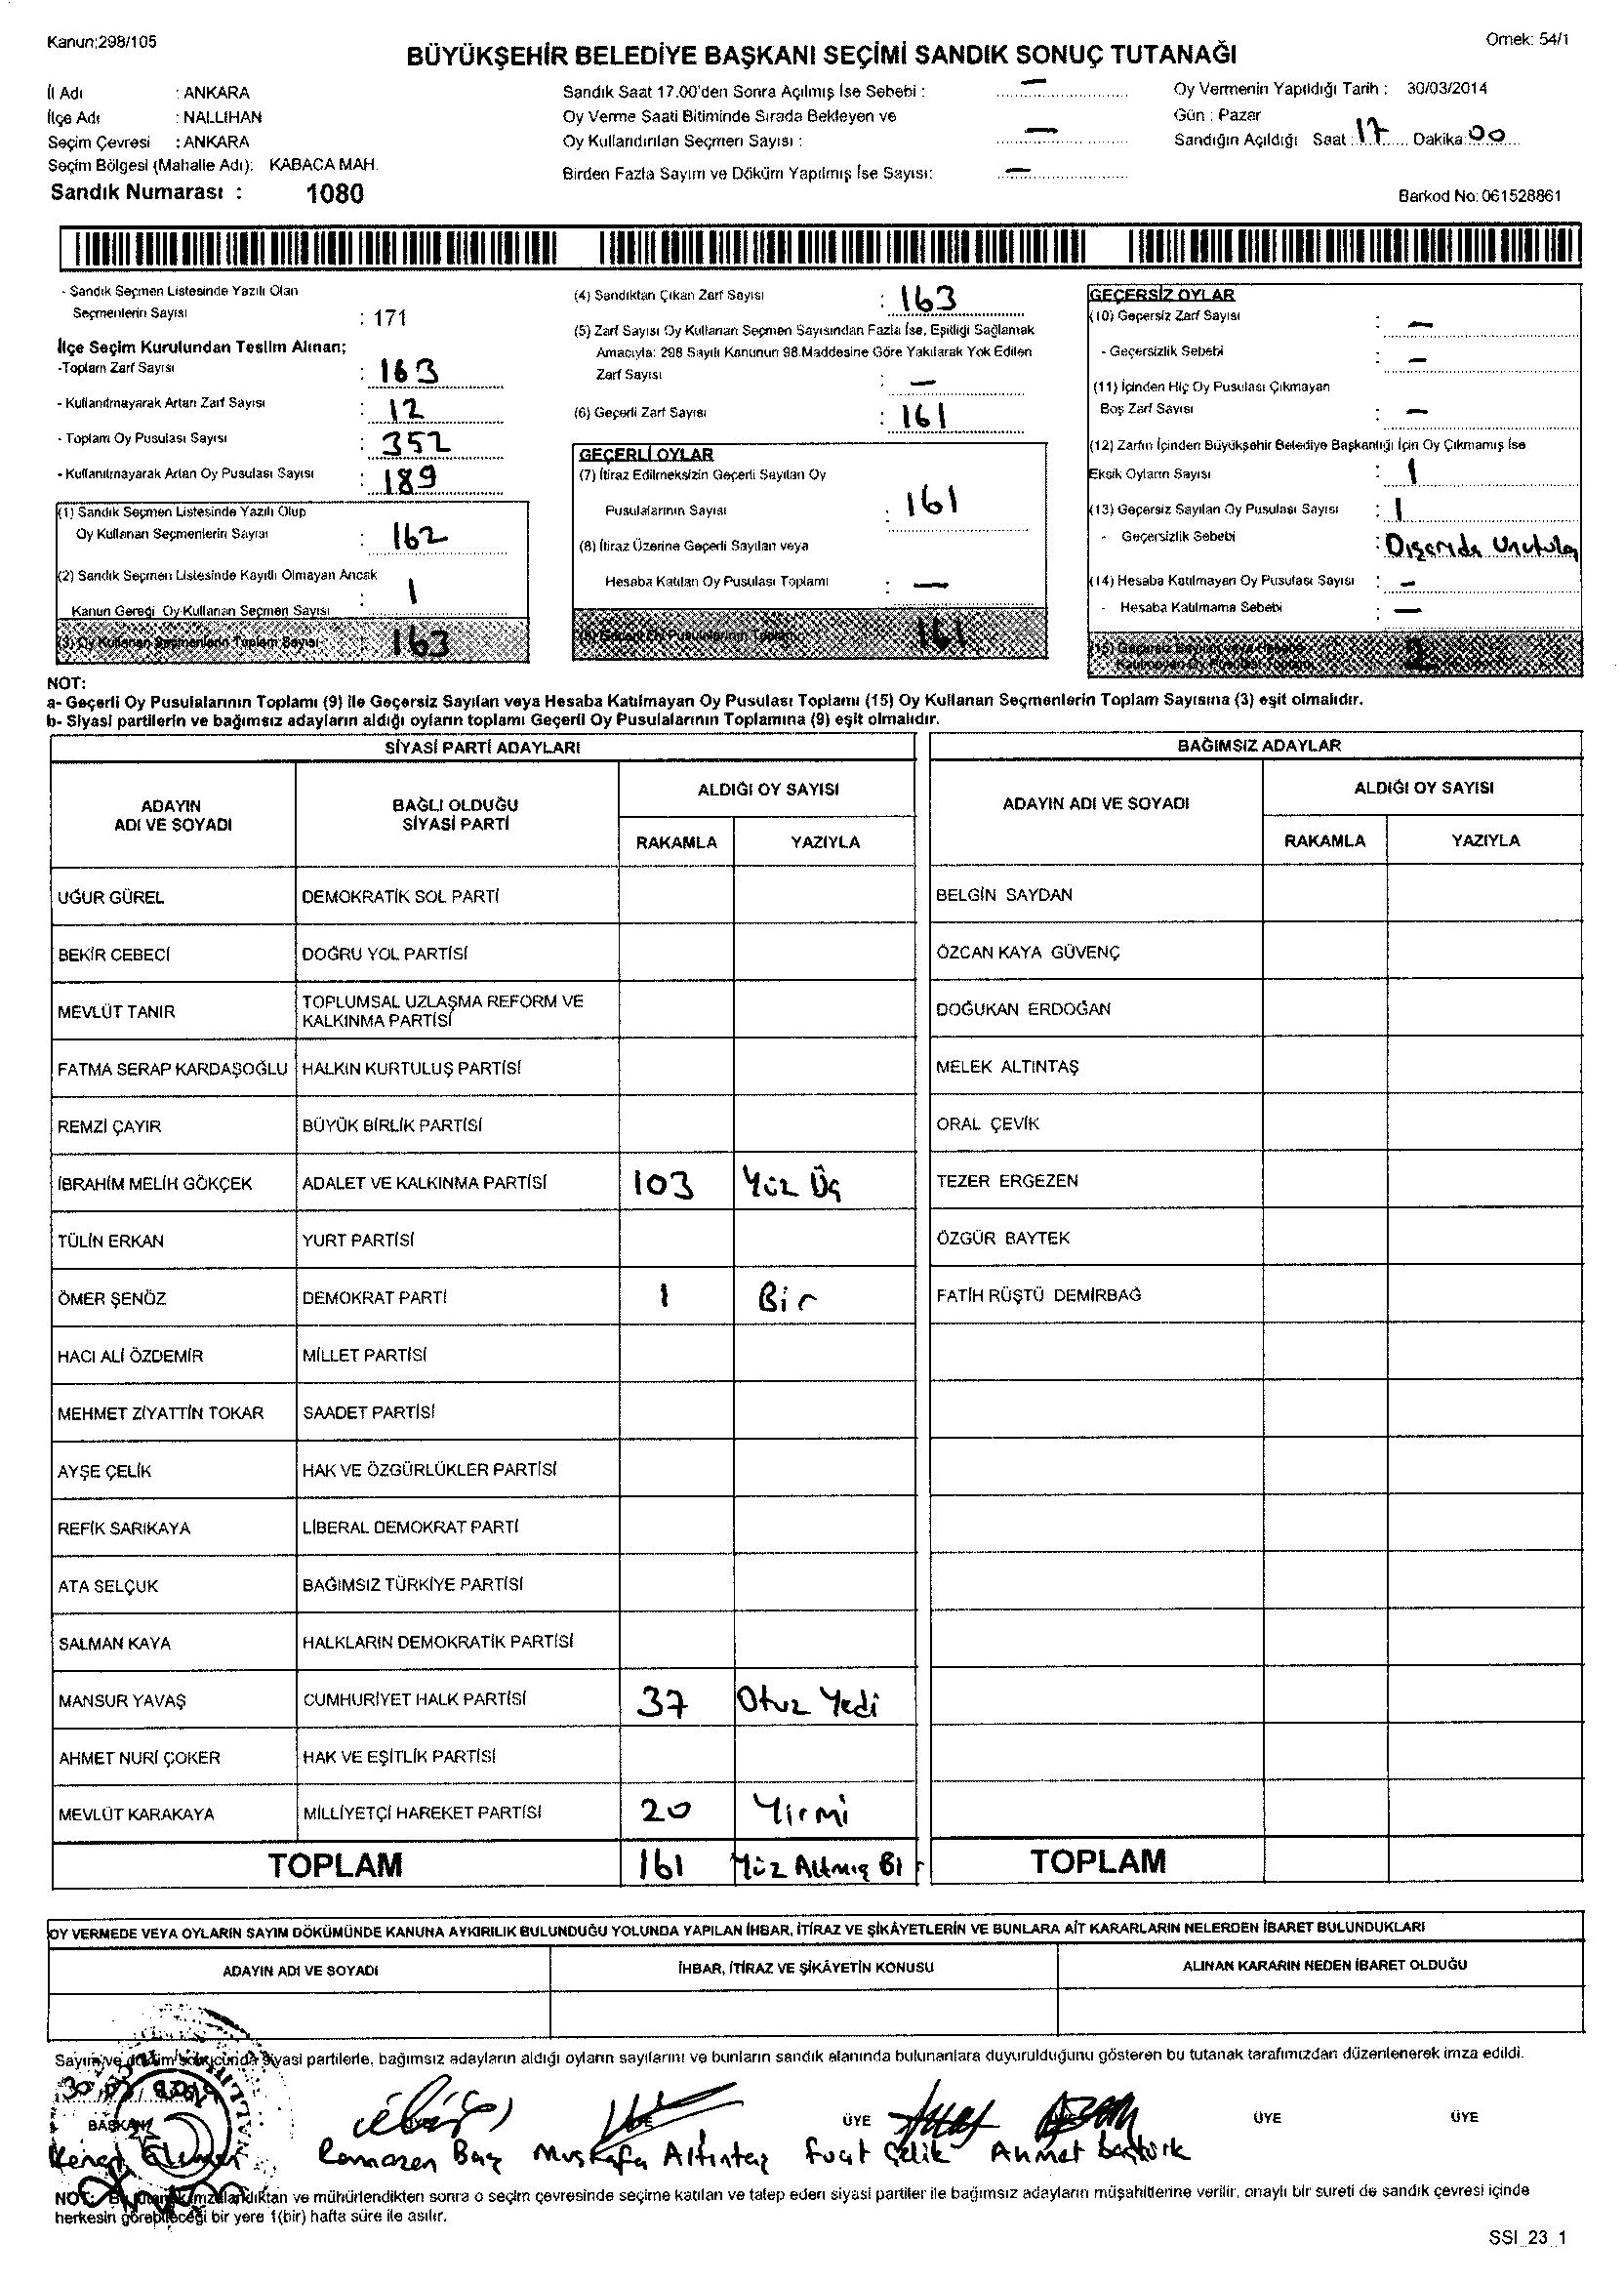 Kanun:298/105
Örnek: 54/1
BÜYÜKŞEHİR BELEDİYE BAŞKANI SEÇİMİ SANDIK SONUÇ TUTANAĞI
İl Adı : ANKARA
İlçe Adı : NALLIHAN
Seçim Çevresi : ANKARA
Seçim Bölgesi (Mahalle Adı): KABACA MAH.
Sandık Numarası : 1080
Sandık Saat 17.00'den Sonra Açılmış İse Sebebi : —
Oy Verme Saati Bitiminde Sırada Bekleyen ve
Oy Kullandırılan Seçmen Sayısı : —
Birden Fazla Sayım ve Döküm Yapılmış İse Sayısı: —
Oy Vermenin Yapıldığı Tarih : 30/03/2014
Gün : Pazar
Sandığın Açıldığı Saat : 17 Dakika: 00
Barkod No: 061528861
- Sandık Seçmen Listesinde Yazılı Olan
Seçmenlerin Sayısı : 171
İlçe Seçim Kurulundan Teslim Alınan;
-Toplam Zarf Sayısı : 163
- Kullanılmayarak Artan Zarf Sayısı : 12
- Toplam Oy Pusulası Sayısı : 352
- Kullanılmayarak Artan Oy Pusulası Sayısı : 189
(1) Sandık Seçmen Listesinde Yazılı Olup
Oy Kullanan Seçmenlerin Sayısı : 162
(2) Sandık Seçmen Listesinde Kayıtlı Olmayan Ancak
Kanun Gereği Oy Kullanan Seçmen Sayısı : 1
(3) Oy Kullanan Seçmenlerin Toplam Sayısı : 163
(4) Sandıktan Çıkan Zarf Sayısı : 163
(5) Zarf Sayısı Oy Kullanan Seçmen Sayısından Fazla İse, Eşitliği Sağlamak
Amacıyla: 298 Sayılı Kanunun 98.Maddesine Göre Yakılarak Yok Edilen
Zarf Sayısı : —
(6) Geçerli Zarf Sayısı : 161
GEÇERLİ OYLAR
(7) İtiraz Edilmeksizin Geçerli Sayılan Oy
Pusulalarının Sayısı : 161
(8) İtiraz Üzerine Geçerli Sayılan veya
Hesaba Katılan Oy Pusulası Toplamı : —
(9) Geçerli Oy Pusulalarının Toplamı 161
GEÇERSİZ OYLAR
(10) Geçersiz Zarf Sayısı : —
- Geçersizlik Sebebi : —
(11) İçinden Hiç Oy Pusulası Çıkmayan
Boş Zarf Sayısı : —
(12) Zarfın İçinden Büyükşehir Belediye Başkanlığı İçin Oy Çıkmamış İse
Eksik Oyların Sayısı : 1
(13) Geçersiz Sayılan Oy Pusulası Sayısı : 1
- Geçersizlik Sebebi : Dışarıda Unutulmş
(14) Hesaba Katılmayan Oy Pusulası Sayısı : —
- Hesaba Katılmama Sebebi : —
(15) Geçersiz Sayılan veya Hesaba
Katılmayan Oy Pusulası Toplamı 2
NOT:
a- Geçerli Oy Pusulalarının Toplamı (9) ile Geçersiz Sayılan veya Hesaba Katılmayan Oy Pusulası Toplamı (15) Oy Kullanan Seçmenlerin Toplam Sayısına (3) eşit olmalıdır.
b- Siyasi partilerin ve bağımsız adayların aldığı oyların toplamı Geçerli Oy Pusulalarının Toplamına (9) eşit olmalıdır.
SİYASİ PARTİ ADAYLARI
ADAYIN ADI VE SOYADI
BAĞLI OLDUĞU SİYASİ PARTİ
ALDIĞI OY SAYISI
RAKAMLA YAZIYLA
UĞUR GÜREL DEMOKRATİK SOL PARTİ
BEKİR CEBECİ DOĞRU YOL PARTİSİ
MEVLÜT TANIR TOPLUMSAL UZLAŞMA REFORM VE KALKINMA PARTİSİ
FATMA SERAP KARDAŞOĞLU HALKIN KURTULUŞ PARTİSİ
REMZİ ÇAYIR BÜYÜK BİRLİK PARTİSİ
İBRAHİM MELİH GÖKÇEK ADALET VE KALKINMA PARTİSİ 103 Yüz Üç
TÜLİN ERKAN YURT PARTİSİ
ÖMER ŞENÖZ DEMOKRAT PARTİ 1 Bir
HACI ALİ ÖZDEMİR MİLLET PARTİSİ
MEHMET ZİYATTİN TOKAR SAADET PARTİSİ
AYŞE ÇELİK HAK VE ÖZGÜRLÜKLER PARTİSİ
REFİK SARIKAYA LİBERAL DEMOKRAT PARTİ
ATA SELÇUK BAĞIMSIZ TÜRKİYE PARTİSİ
SALMAN KAYA HALKLARIN DEMOKRATİK PARTİSİ
MANSUR YAVAŞ CUMHURİYET HALK PARTİSİ 37 Otuz Yedi
AHMET NURİ ÇOKER HAK VE EŞİTLİK PARTİSİ
MEVLÜT KARAKAYA MİLLİYETÇİ HAREKET PARTİSİ 20 Yirmi
TOPLAM 161 Yüz Altmış Bir
BAĞIMSIZ ADAYLAR
ADAYIN ADI VE SOYADI
ALDIĞI OY SAYISI
RAKAMLA YAZIYLA
BELGİN SAYDAN
ÖZCAN KAYA GÜVENÇ
DOĞUKAN ERDOĞAN
MELEK ALTINTAŞ
ORAL ÇEVİK
TEZER ERGEZEN
ÖZGÜR BAYTEK
FATİH RÜŞTÜ DEMİRBAĞ
TOPLAM
OY VERMEDE VEYA OYLARIN SAYIM DÖKÜMÜNDE KANUNA AYKIRILIK BULUNDUĞU YOLUNDA YAPILAN İHBAR, İTİRAZ VE ŞİKÂYETLERİN VE BUNLARA AİT KARARLARIN NELERDEN İBARET BULUNDUKLARI
ADAYIN ADI VE SOYADI
İHBAR, İTİRAZ VE ŞİKÂYETİN KONUSU
ALINAN KARARIN NEDEN İBARET OLDUĞU
Sayım ve döküm sonucunda siyasi partilerle, bağımsız adayların aldığı oyların sayılarını ve bunların sandık alanında bulunanlara duyurulduğunu gösteren bu tutanak tarafımızdan düzenlenerek imza edildi.
BAŞKAN ÜYE ÜYE ÜYE
Ramazan Baş Mustafa Altıntaş Fuat Çelik Ahmet
NOT: Bu tutanak imzalandıktan ve mühürlendikten sonra o seçim çevresinde seçime katılan ve talep eden siyasi partiler ile bağımsız adayların müşahitlerine verilir, onaylı bir sureti de sandık çevresi içinde
herkesin görebileceği bir yere 1(bir) hafta süre ile asılır.
SSI_23_1